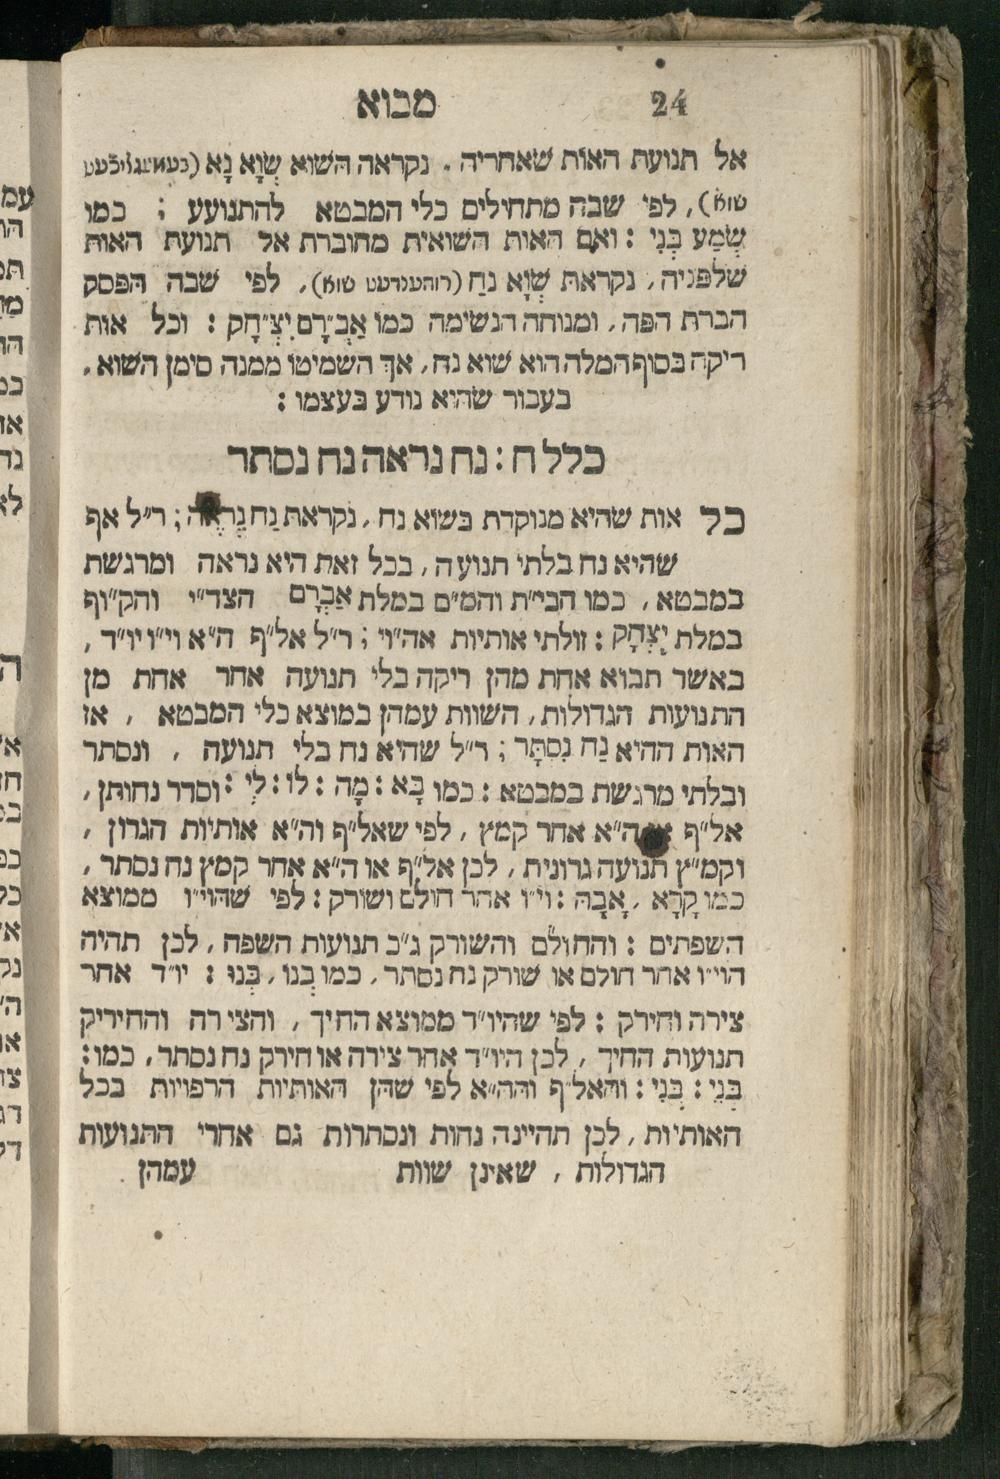 24 מבוא
אל תנועת האות שאחריה. נקראה השוא שְׁוָא נָא (בעוועגליכעט
שווא), לפי שבה מתחילים כלי המבטא להתנועע; כמו
שְׁמַע בְּנִי: ואם האות השואית מחוברת אל תנועת האות
שלפניה, נקראת שְׁוָא נַח (רוהענדעט שווא), לפי שבה הפסק
הברת הפה, ומנוחה הנשימה כמו אַבְ־רָם יִצְ־חָק: וכל אות
ריקה בסוף המלה הוא שוא נח, אך השמיטו ממנה סימן השוא,
בעבור שהוא נודע בעצמו:
כלל ח: נח נראה נח נסתר
כל אות שהיא מנוקדת בשוא נח, נקראת נַח נִרְאֶה; ר״ל אף
שהיא נח בלתי תנועה, בכל זאת היא נראה ומרגשת
במבטא, כמו הבי״ת והמ״ם במלת אַבְרָם הצד״י והק״וף
במלת יִצְחָק: זולתי אותיות אהו״י; ר״ל אל״ף ה״א וי״ו יו״ד,
באשר תבוא אחת מהן ריקה בלי תנועה אחר אחת מן
התנועות הגדולות, השוות עמהן במוצא כלי המבטא, אז
האות ההיא נַח נִסְתָּר; ר״ל שהיא נח בלי תנועה, ונסתר
ובלתי מרגשת במבטא: כמו בָּא: מָה: לוֹ: לִי: וסדר נחותן,
אל״ף או ה״א אחר קמץ, לפי שאל״ף וה״א אותיות הגרון,
וקמ״ץ תנועה גרונית, לכן אל״ף או ה״א אחר קמץ נח נסתר,
כמו קָרָא, אָבָה: וי״ו אחר חולם ושורק: לפי שהוי״ו ממוצא
השפתים: והחולם והשורק ג״כ תנועות השפה, לכן תהיה
הוי״ו אחר חולם או שורק נח נסתר, כמו בְנוֹ, בְּנוּ: יו״ד אחר
צירה וחירק: לפי שהיו״ד ממוצא החיך, והצירה והחיריק
תנועות החיך, לכן היו״ד אחר צירה או חירק נח נסתר, כמו:
בְּנֵי: בְּנִי: והאל״ף והה״א לפי שהן האותיות הרפויות בכל
האותיות, לכן תהיינה נחות ונסתרות גם אחרי התנועות
הגדולות, שאינן שוות עמהן